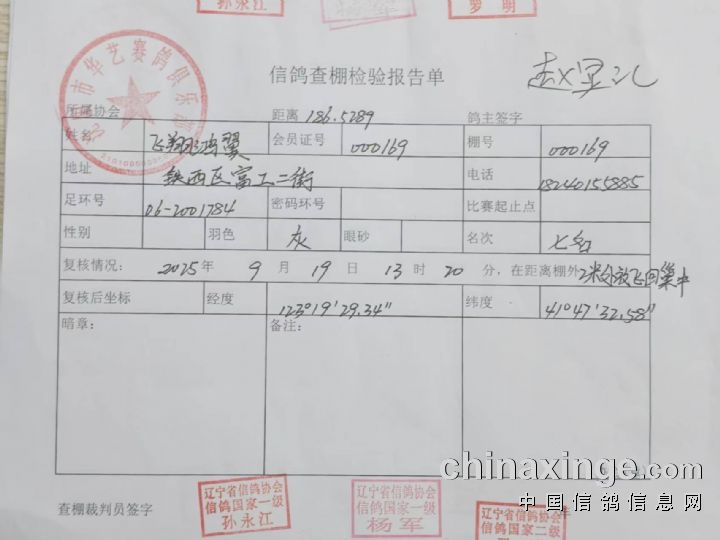 孙永江
杨军
罗 明
信鸽查棚检验报告单
市华艺赛鸽俱乐部
所属协会 距离 186.5289 鸽主签字
姓名 飞翔 鸿翼 会员证号 000169 棚号 000169
地址 铁西区富工二街 电话 18240155885
足环号 06-2001784 密码环号 比赛起止点
性别 羽色 灰 眼砂 名次 七名
复核情况: 2025 年 9 月 19 日 13 时 20 分,在距离棚外2米处放飞回巢中
复核后坐标 经度 123°19'29.34" 纬度 41°47'32.58"
暗章: 备注:
查棚裁判员签字
辽宁省信鸽协会
信鸽国家一级
孙永江
辽宁省信鸽协会
信鸽国家一级
杨军
辽宁省信鸽协会
信鸽国家二级
chinaxinge.com
中国信鸽信息网